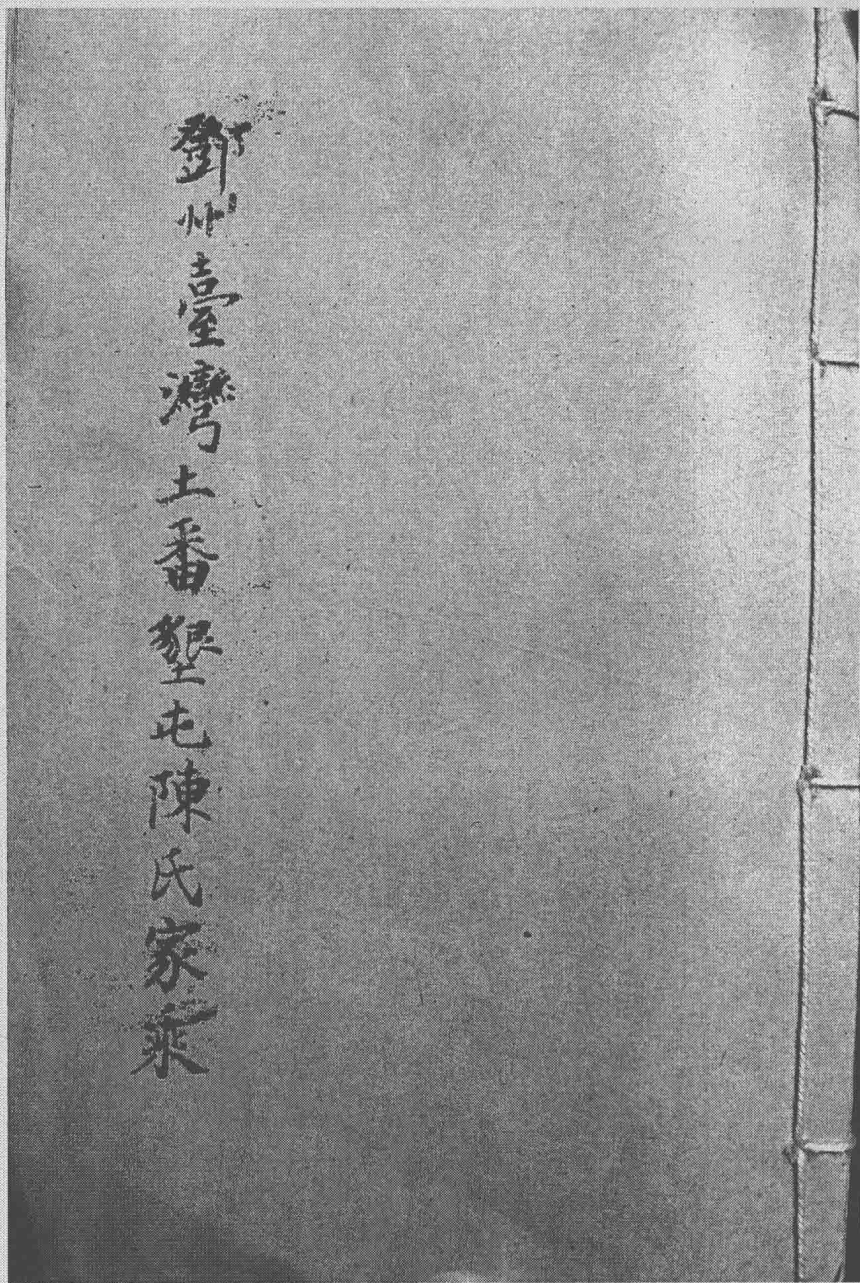 鄧州臺灣土番墾屯陳氏家乘